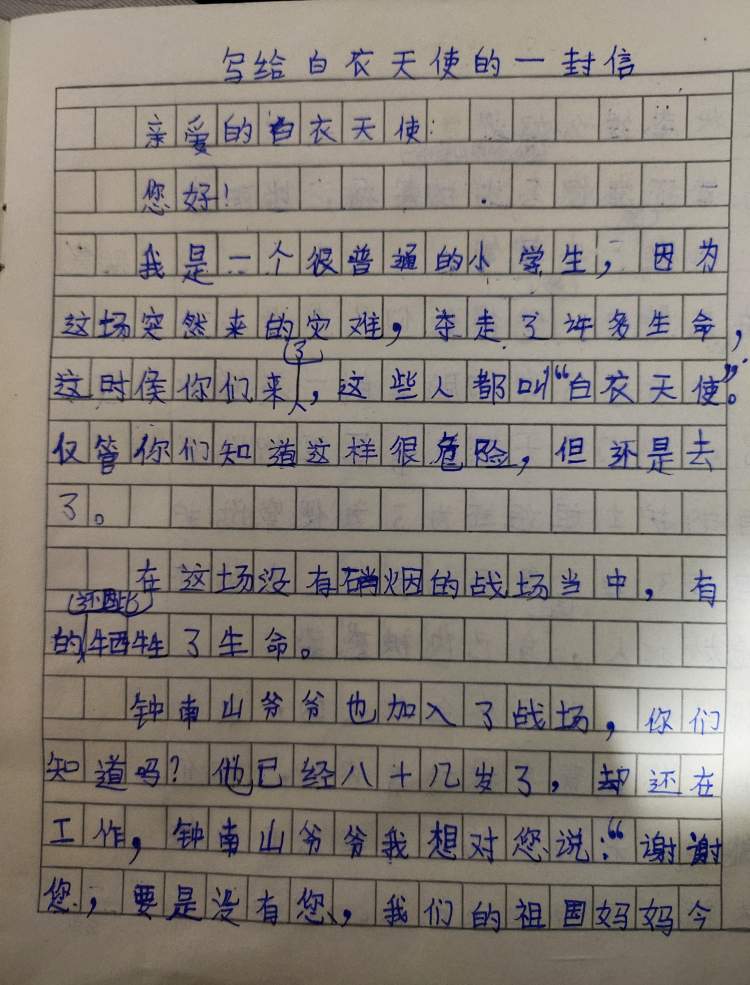 写给白衣天使的一封信
亲爱的白衣天使:
您好!
我是一个很普通的小学生,因为
这场突然来的灾难,夺走了许多生命,
了
这时侯你们来人,这些人都叫“白衣天使”。
仅管你们知道这样很危险,但还是去
了。
在这场没有硝烟的战场当中,有
的牺牲了生命。
钟南山爷爷也加入了战场,你们
知道吗?他已经八十几岁了,却还在
工作,钟南山爷爷我想对您说:“谢谢
您,要是没有您,我们的祖国妈妈今